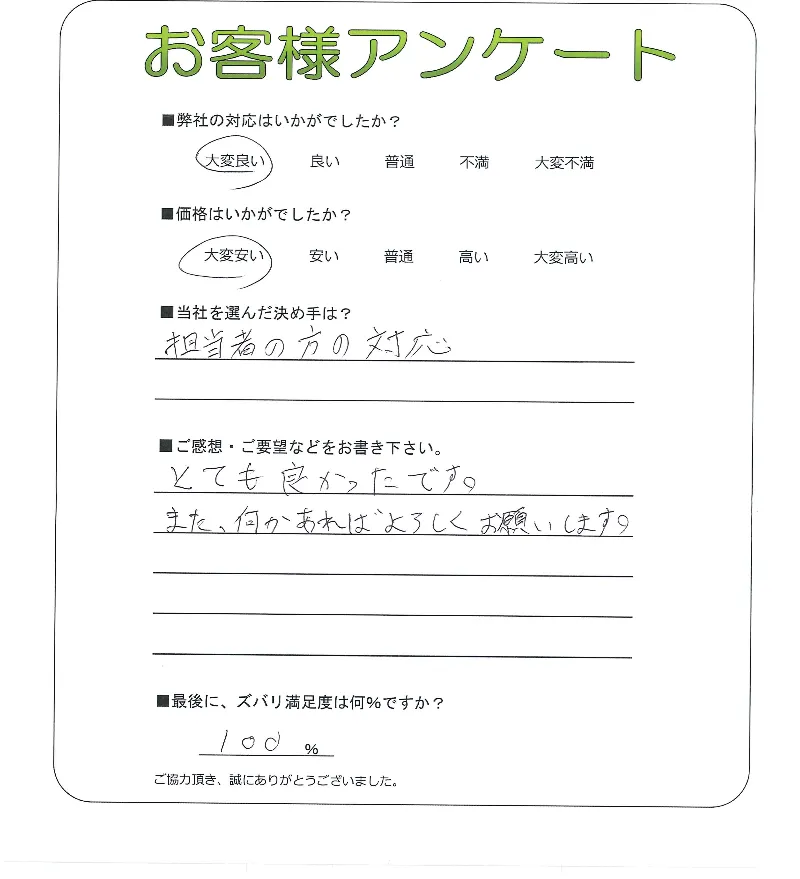 お客様アンケート
■弊社の対応はいかがでしたか？
大変良い 良い 普通 不満 大変不満
■価格はいかがでしたか？
大変安い 安い 普通 高い 大変高い
■当社を選んだ決め手は？
担当者の方の対応
■ご感想・ご要望などをお書き下さい。
とても良かったです。
また、何かあればよろしくお願いします。
■最後に、ズバリ満足度は何%ですか？
100 %
ご協力頂き、誠にありがとうございました。